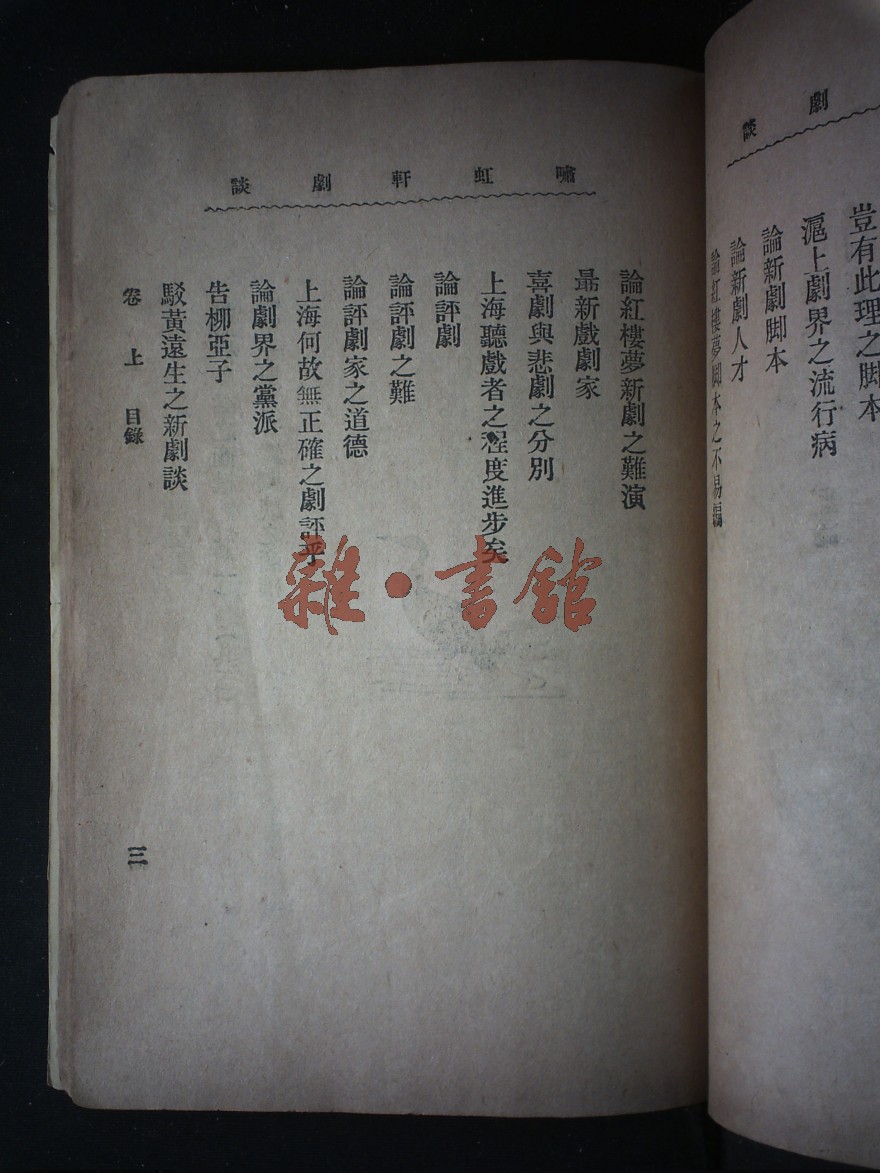 劇談
豈有此理之脚本
滬上劇界之流行病
論新劇脚本
論新劇人才
論紅樓夢脚本之不易編
嘯虹軒劇談
論紅樓夢新劇之難演
最新戲劇家
喜劇與悲劇之分別
上海聽戲者之程度進步矣
論評劇
論評劇之難
論評劇家之道德
上海何故無正確之劇評乎
論劇界之黨派
告柳亞子
駁黃遠生之新劇談
卷上 目錄
三
雜·書館